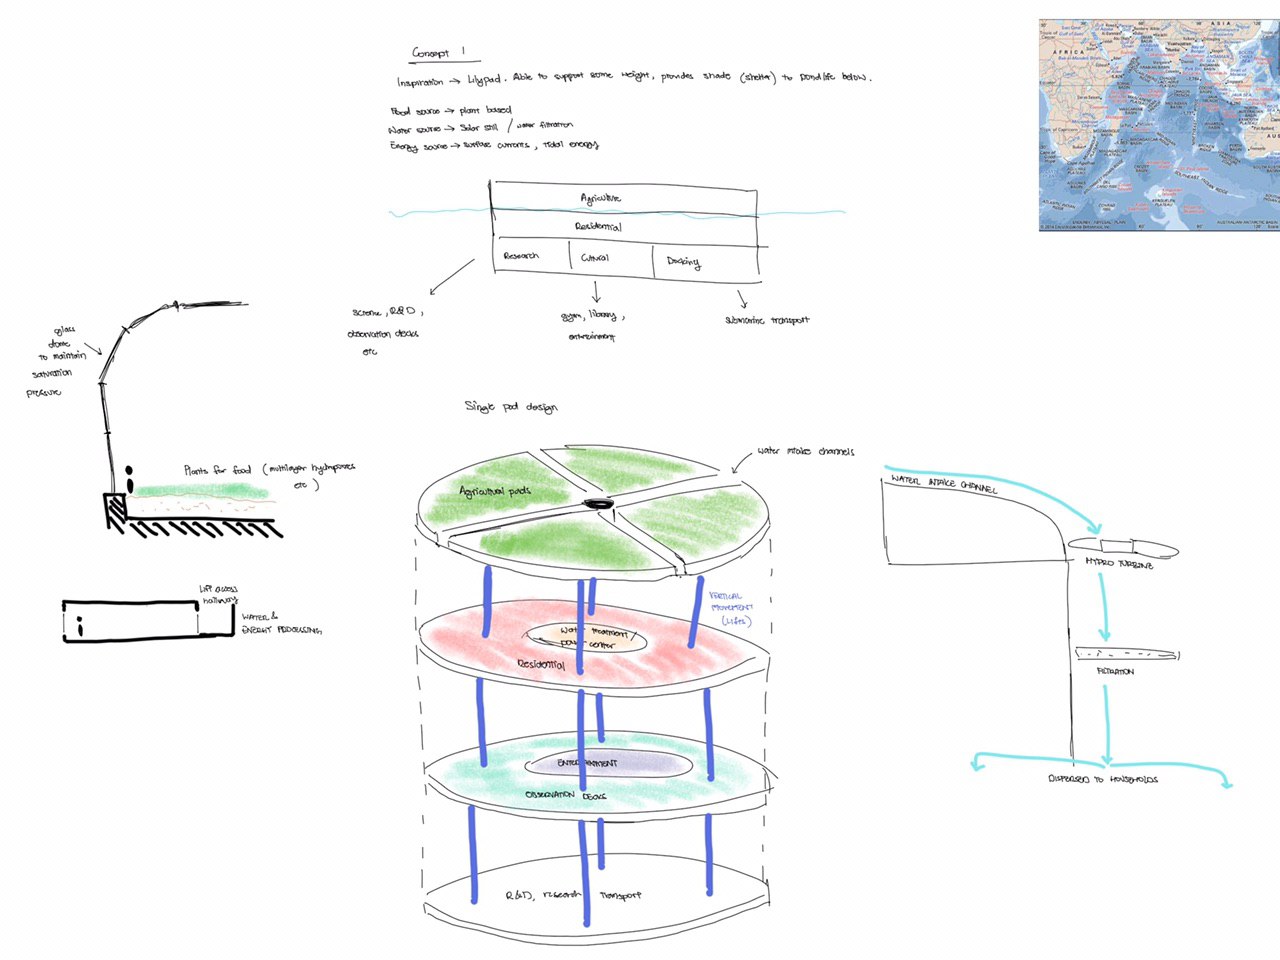 Concept 1
Inspiration → Lilypad. Able to support some weight, provides shade (shelter) to pondlife below.
Food source → plant based
Water source → Solar still / water filtration
Energy source → surface currents, tidal energy
Agriculture
Residential
Research
Cultural
Docking
science, R&D,
observation decks
etc
gym, library,
entertainment
submarine transport
glass
dome
to maintain
saturation
pressure
Plants for food (multilayer hydroponics
etc)
Lift access
hallway
WATER &
ENERGY PROCESSING
Single pod design
water intake channels
Agricultural pads
VERTICAL
MOVEMENT
(Lifts)
Water treatment
power center
Residential
ENTERTAINMENT
OBSERVATION DECKS
R&D, research
Transport
WATER INTAKE CHANNEL
HYDRO TURBINE
FILTRATION
DISPERSED TO HOUSEHOLDS
ASIA
AFRICA